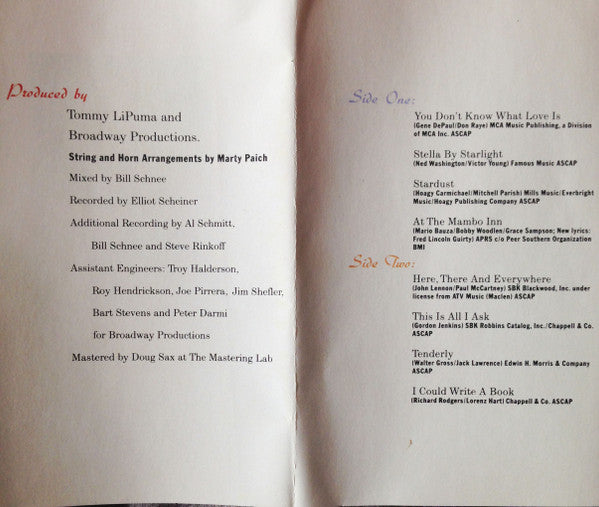 Produced by
Tommy LiPuma and
Broadway Productions.
String and Horn Arrangements by Marty Paich
Mixed by Bill Schnee
Recorded by Elliot Scheiner
Additional Recording by Al Schmitt,
Bill Schnee and Steve Rinkoff
Assistant Engineers: Troy Halderson,
Roy Hendrickson, Joe Pirrera, Jim Shefler,
Bart Stevens and Peter Darmi
for Broadway Productions
Mastered by Doug Sax at The Mastering Lab
Side One:
You Don't Know What Love Is
(Gene DePaul/Don Raye) MCA Music Publishing, a Division
of MCA Inc. ASCAP
Stella By Starlight
(Ned Washington/Victor Young) Famous Music ASCAP
Stardust
(Hoagy Carmichael/Mitchell Parish) Mills Music/Everbright
Music/Hoagy Publishing Company ASCAP
At The Mambo Inn
(Mario Bauza/Bobby Woodlen/Grace Sampson; New lyrics:
Fred Lincoln Guirty) APRS c/o Peer Southern Organization
BMI
Side Two:
Here, There And Everywhere
(John Lennon/Paul McCartney) SBK Blackwood, Inc. under
license from ATV Music (Maclen) ASCAP
This Is All I Ask
(Gordon Jenkins) SBK Robbins Catalog, Inc./Chappell & Co.
ASCAP
Tenderly
(Walter Gross/Jack Lawrence) Edwin H. Morris & Company
ASCAP
I Could Write A Book
(Richard Rodgers/Lorenz Hart) Chappell & Co. ASCAP